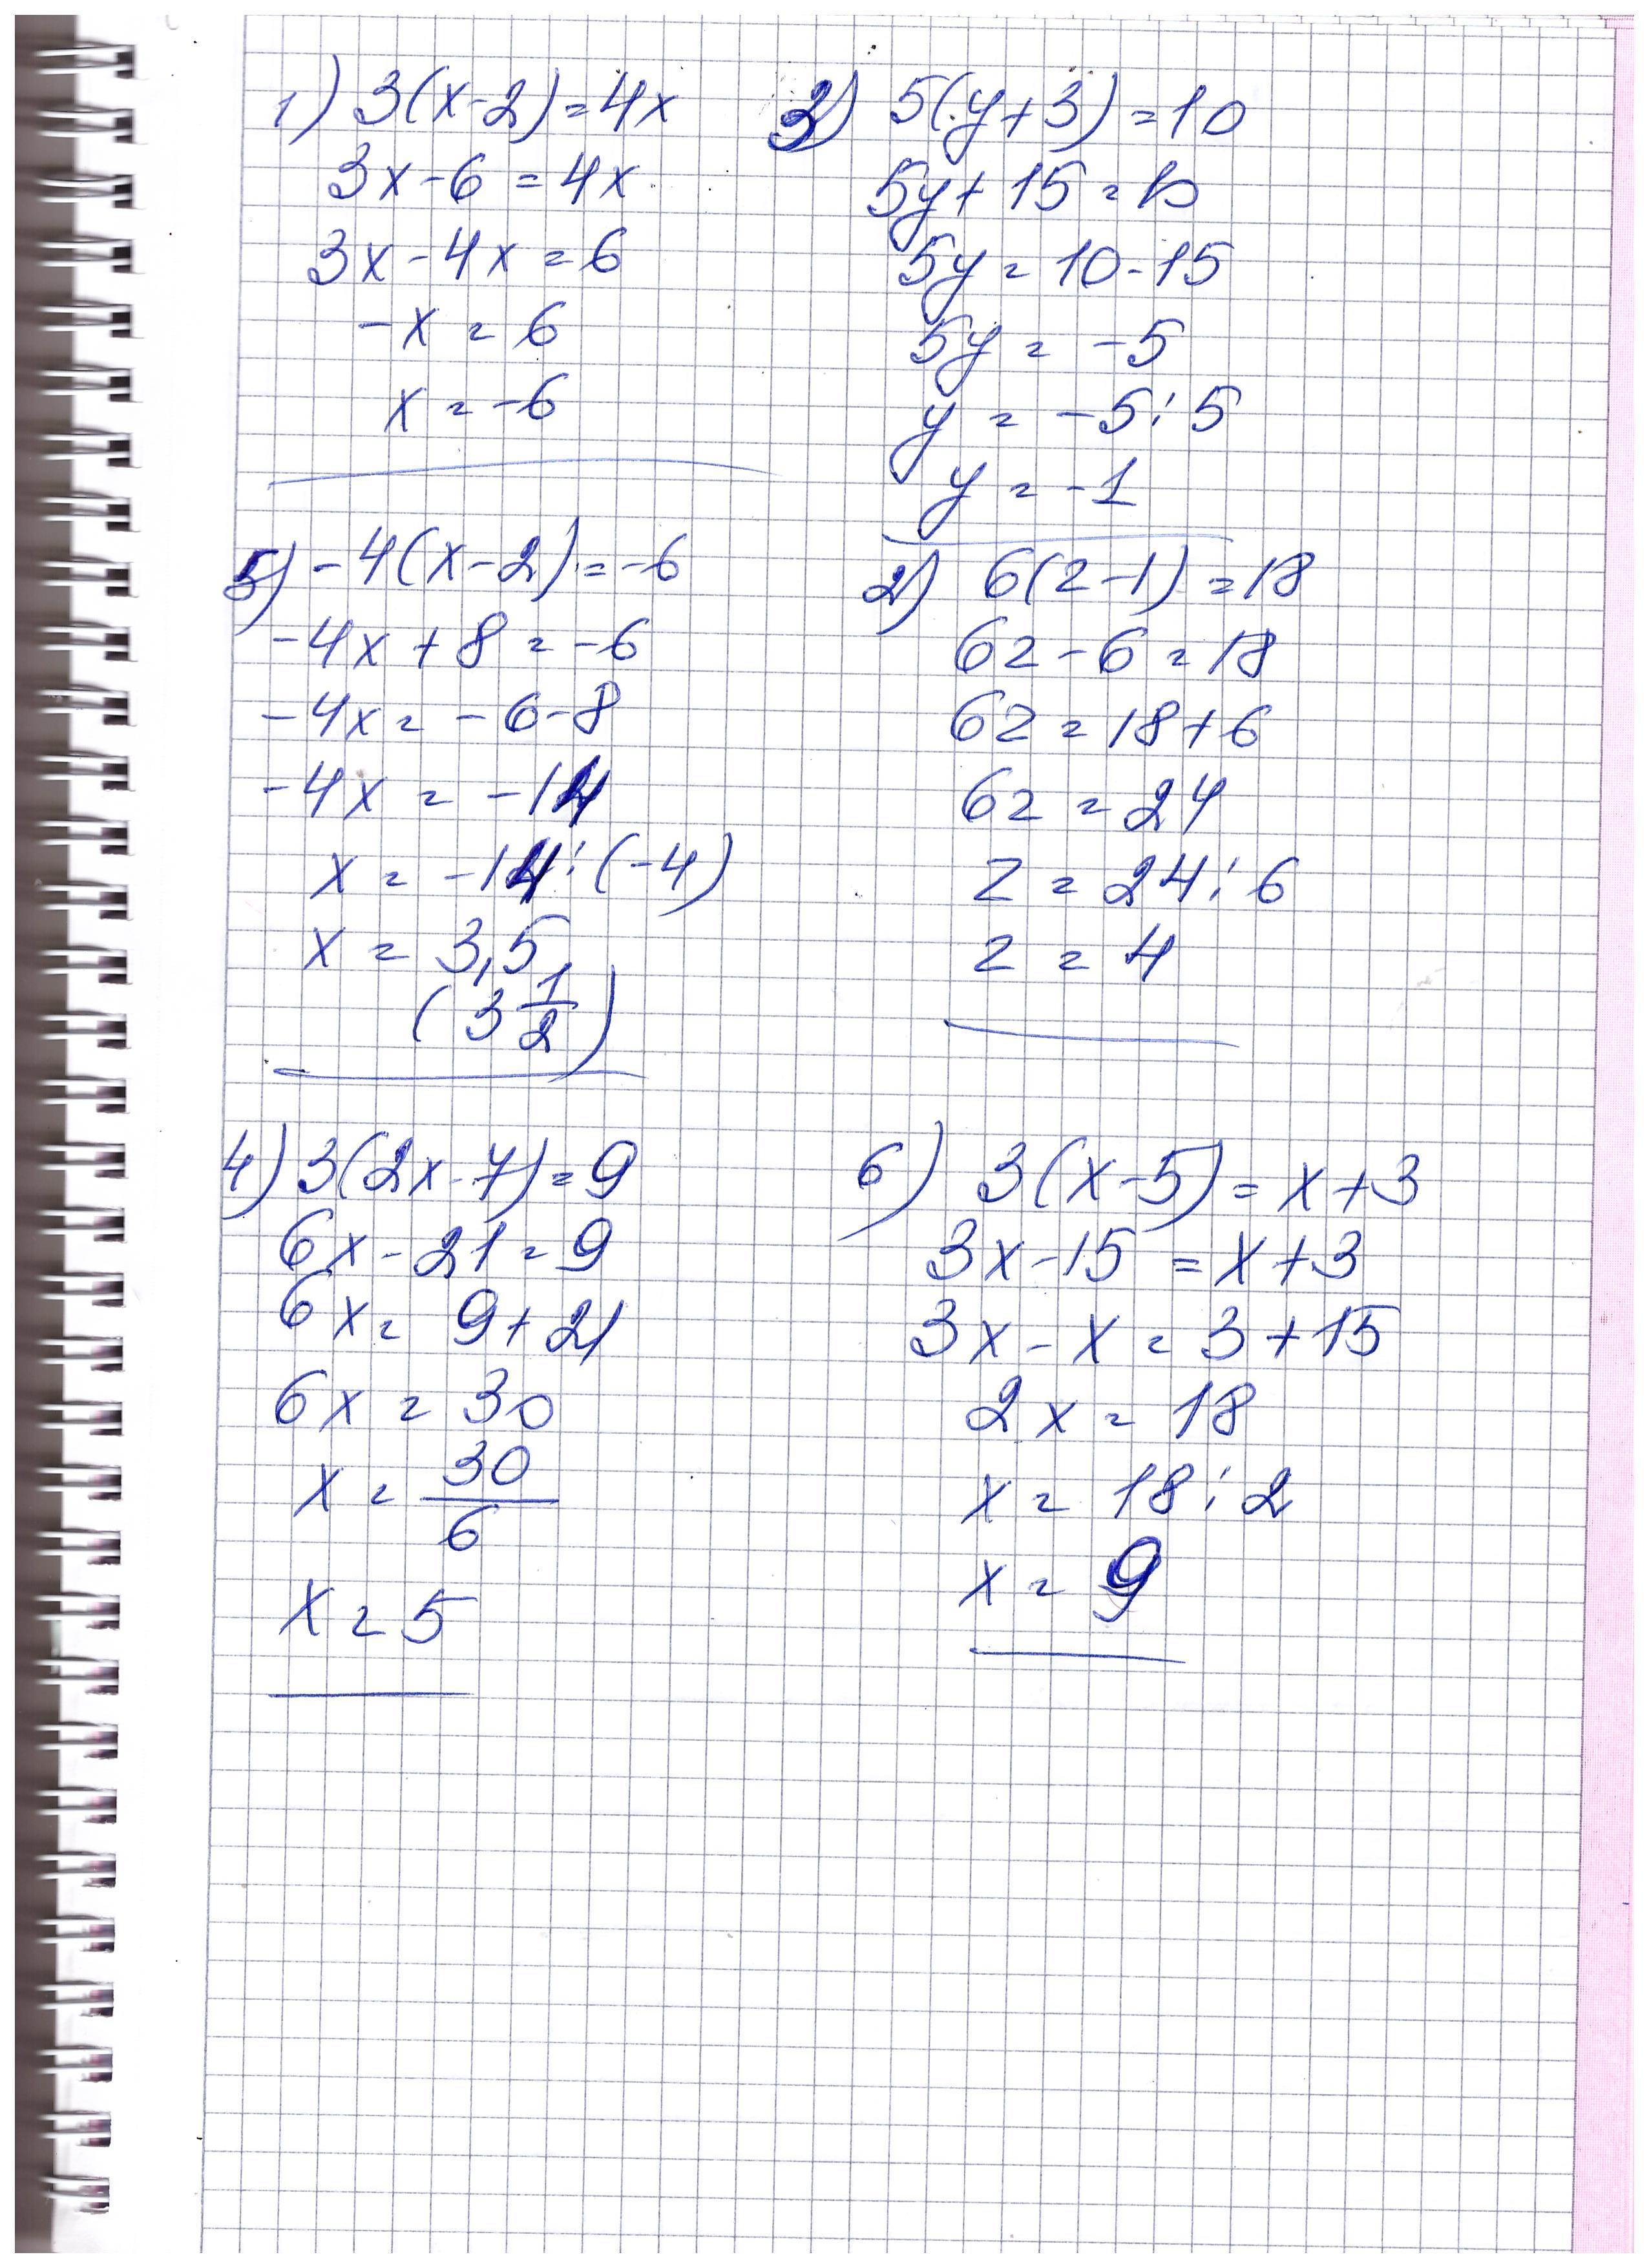 1) 3(x-2)=4x
3x-6=4x
3x-4x=6
-x=6
x=-6
3) 5(y+3)=10
5y+15=10
5y=10-15
5y=-5
y=-5:5
y=-1
5) -4(x-2)=-6
-4x+8=-6
-4x=-6-8
-4x=-14
x=-14:(-4)
x=3,5
(3 1/2)
2) 6(z-1)=18
6z-6=18
6z=18+6
6z=24
z=24:6
z=4
4) 3(2x-7)=9
6x-21=9
6x=9+21
6x=30
x=30/6
x=5
6) 3(x-5)=x+3
3x-15=x+3
3x-x=3+15
2x=18
x=18:2
x=9